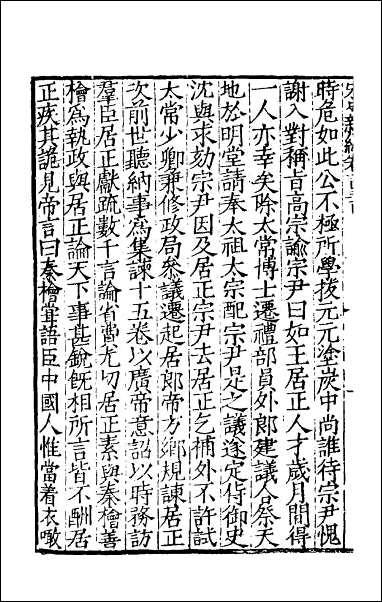 時危如此公不極所學拔元元塗炭中尚誰待宗尹愧
謝入對稱旨高宗諭宗尹曰如王居正人才歲月閒得
一人亦幸矣除太常博士遷禮部員外郎建議合祭天
地於明堂請奉太祖太宗配宗尹是之議遂定侍御史
沈與求劾宗尹因及居正宗尹去居正乞補外不許試
太常少卿兼修政局叅議遷起居郎帝方鄉規諫居正
次前世聽納事爲集諫十五卷以廣帝意詔以時務訪
羣臣居正獻疏數千言論省費尤切居正素與秦檜善
檜爲執政與居正論天下事甚銳旣相所言皆不酬居
正疾其詭見帝言曰秦檜甞語臣中國人惟當着衣噉